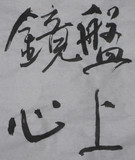 盤上
鏡心